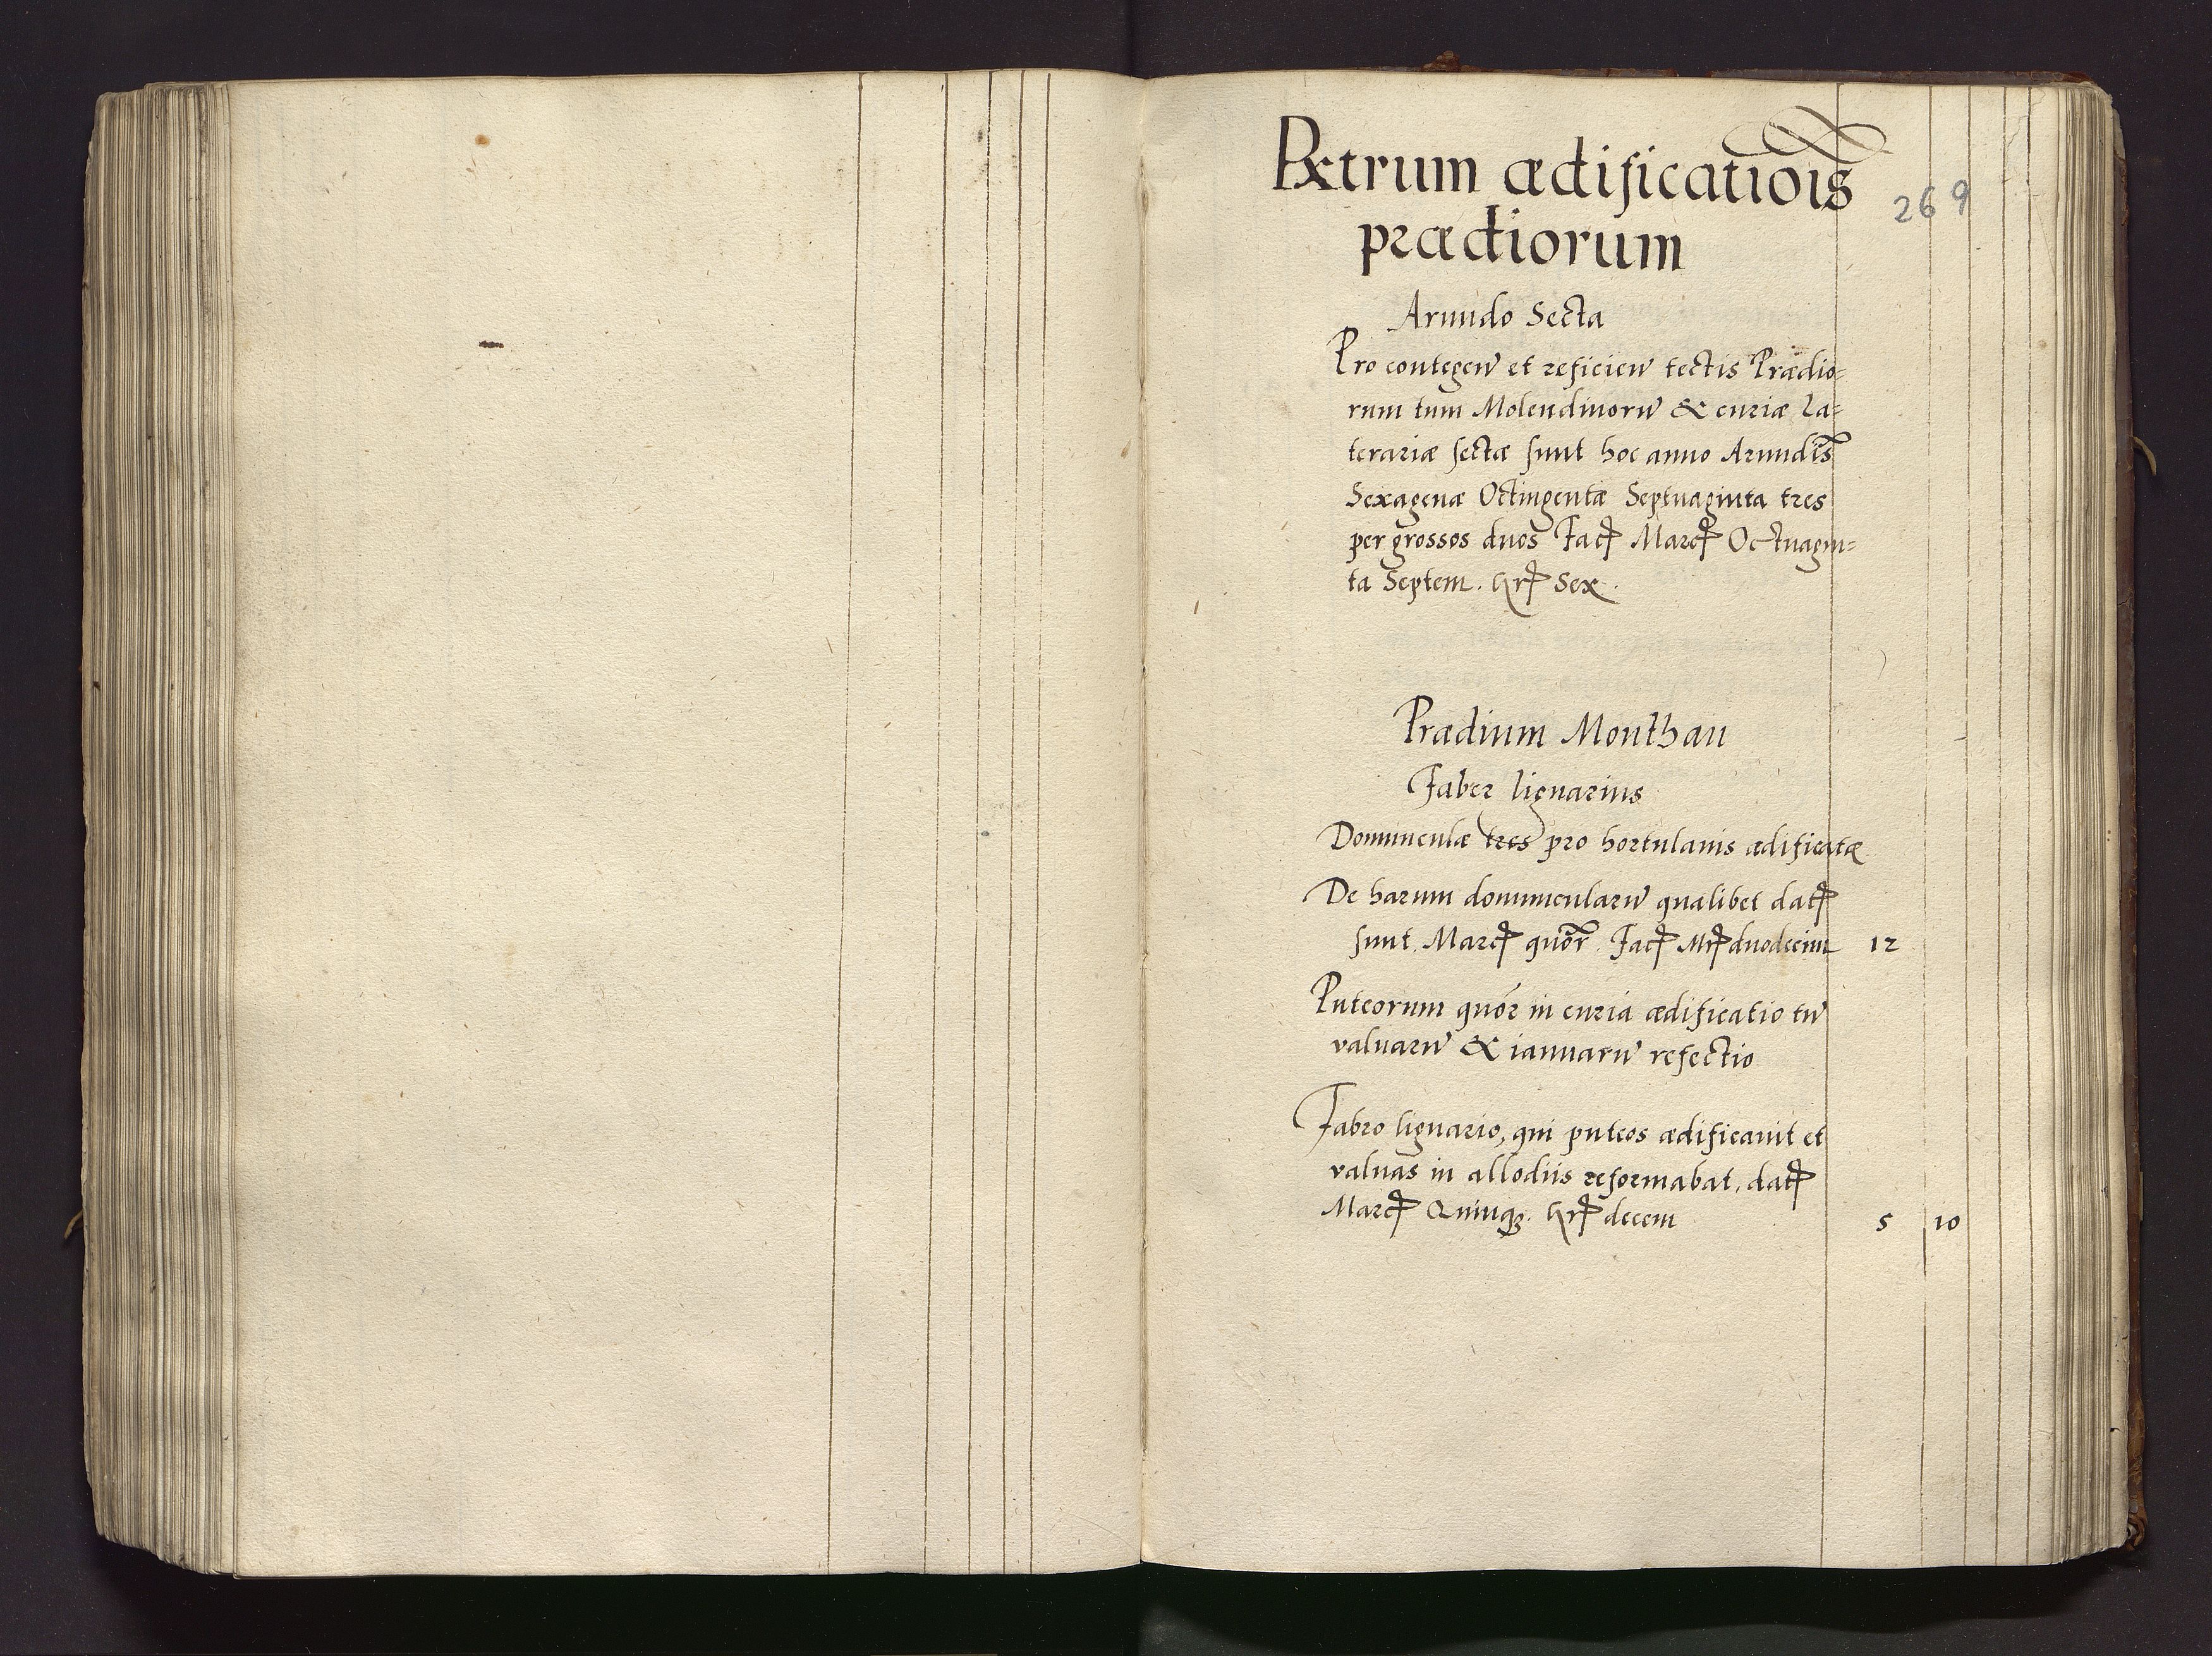 Rxtrum ædificatiōis
269
prædiorum
Arundo Secta
Pro contegen̄ et reficien̄ tectis Prædio=
rum tum Molendinorū & curiæ La=
terariæ sectæ sunt hoc anno Arundīs
Sexagenæ Octingentæ Septuaginta tres
per grossos duos Facꝭ Marcꝭ Octuagin=
ta Septem. grꝭ Sex.
Prædium Monthau
Faber lignarius
Domunculæ tres pro hortulanis ædificatæ
De harum domuncularū qualibet datꝭ
sunt. Marcꝭ quōr. Facꝭ Mrꝭ duodecim 12
Puteorum quór in curia ædificatio tū
valuarū & ianuarū refectio
Fabro lignario, qui puteos ædificauit et
valuas in allodiis reformabat. datꝭ
Marcꝭ Quinqꝫ. grꝭ decem 5 10